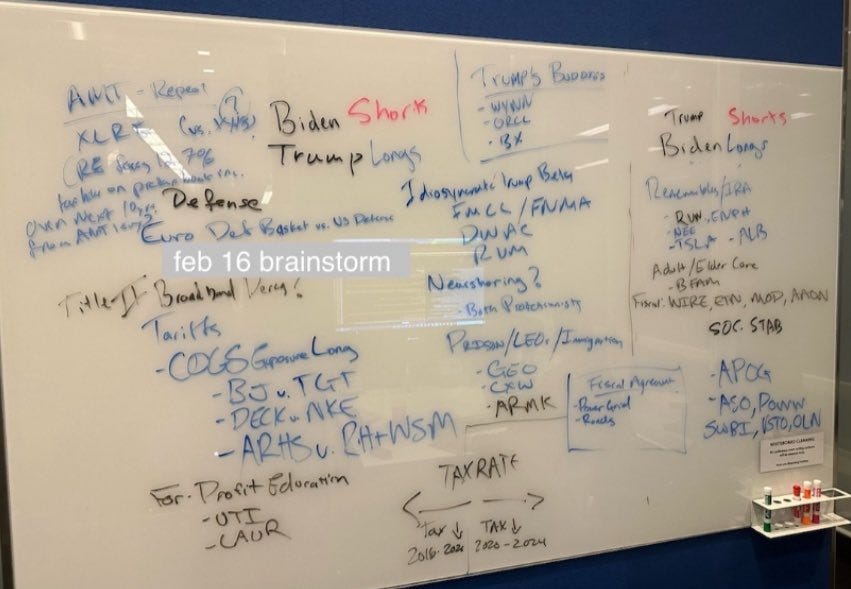 AMT - Repeal
?
XLRE (vs. XHB)
(RE
tax on
own next 10yrs.
from AMT
Biden Shorts
Trump Longs
Defense
Euro Def Basket vs. US Defense
feb 16 brainstorm
Title-II Broadband
Tariffs
- COGS Exposure Long
- BJ v. TGT
- DECK v. NKE
- ARHS v. RH + WSM
For-Profit Education
- UTI
- LAUR
Trump's Buddies
- WYNN
- ORCL
- BX
Idiosyncratic Trump Beta
FMCC / FNMA
DWAC
RUM
Nearshoring?
- Both Protectionists
Prison/LEOs/Immigration
- GEO
- CXW
- ARMK
Fiscal Agreement
- Power Grid
- Roads
TAX RATE
Tax ↓ TAX ↓
2016-2020 2020-2024
Trump Shorts
Biden Longs
Renewables/IRA
- RUN, ENPH
- NEE
- TSLA - ALB
Adult/Elder Care
- BFAM
Fiscal: WIRE, ETN, MOD, AAON
SOC. STAB
- APOG
- ASO, POWW
SWBI, VSTO, OLN
WHITEBOARD CLEANING